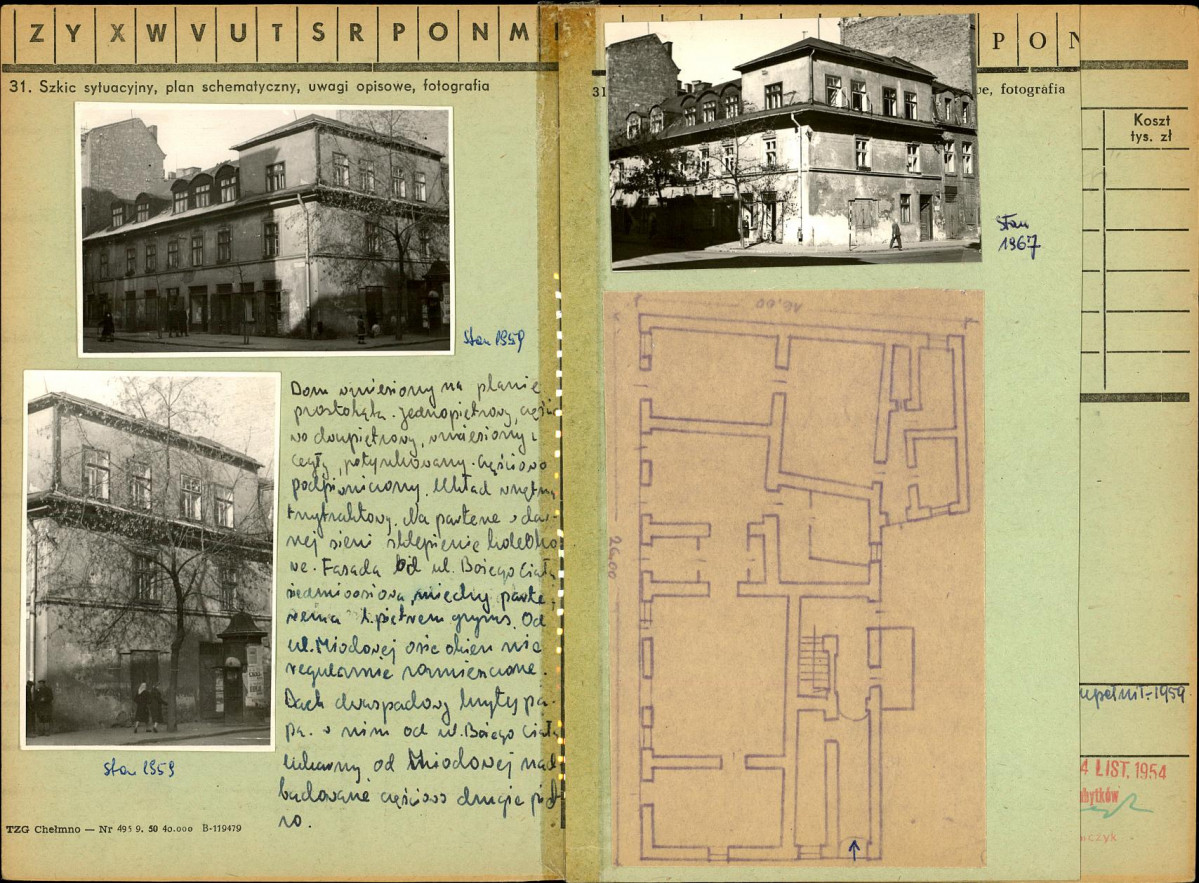 Z Y X W V U T S R P O N M
31. Szkic sytuacyjny, plan schematyczny, uwagi opisowe, fotografia
Stan 1959
Dom wniesiony na planie
prostokąta. Jednopiętrowy, częś
wo dwupiętrowy, wniesiony z
cegły, potynkowany. Częściowo
podpiwniczony. Układ wnętrz
trzytraktowy. Na parterze w daw
nej sieni sklepienie kolebko
we. Fasada od ul. Bożego Ciała
siedmioosiowa, między parte
rem a I. piętrem gzyms. Od
ul. Miodowej osie okien nie
regularnie rozmieszczone.
Dach dwuspadowy kryty pa-
pą. w nim od ul. Bożego Ciała
lukarny, od Miodowej nad
budowane częściowo drugie pięt
ro.
Stan 1959
TZG Chełmno — Nr 495 9. 50 40.000 B-119479
P O N
31
we, fotografia
Stan
1967
16,00
26,00
Koszt
tys. zł
upełnił - 1959
4 LIST. 1954
abytków
czyk